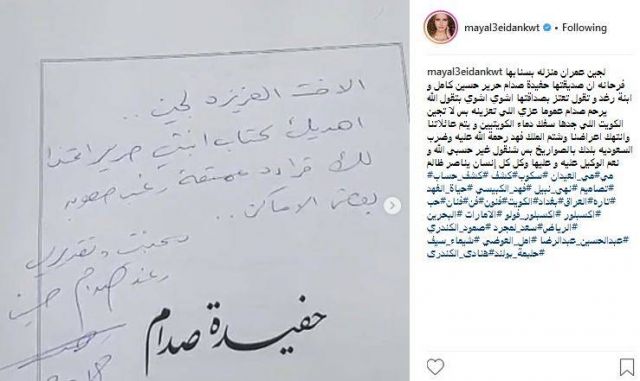 mayal3eidankwt
Following
الاخت العزيزة لجين..
اهديك كتاب ابنتي حرير اتمنى
لك قراءة ممتعة رغم صعوبة
بعض الاماكن..
محبتي وتقديري
رغد صدام حسين
حفيدة صدام
mayal3eidankwt لجين عمران منزله بسنابها
فرحانه ان صديقتها حفيدة صدام حرير حسين كامل و
ابنة رغد و تقول تعتز بصداقتها اشوي اشوي بتقول الله
يرحم صدام عموما عزي اللي تعزينه بس لا تجين
الكويت اللي جدها سفك دماء الكويتيين و يتم عائلاتنا
وانتهك اعراضنا وشتم الملك فهد رحمة الله عليه وضرب
السعوديه بلدك بالصواريخ بس شنقول غير حسبي الله و
نعم الوكيل عليه و عليها وكل كل إنسان يناصر ظالم
#مي#مي_العيدان #سكوب#كشف #كشف_حساب
#تصاميم #نهى_نبيل #فهد_الكبيسي #حياة_الفهد
#تاره#العراق#بغداد#الكويت#فنون#فن#فنان#حب
#اكسبلور #اكسبلور_فولو #الامارات #البحرين
#الرياض#سعد_لمجرد #صمود_الكندري
#عبدالحسين_عبدالرضا #امل_العوضي #شيماء_سيف
#حليمة_بولند#هنادي_الكندري